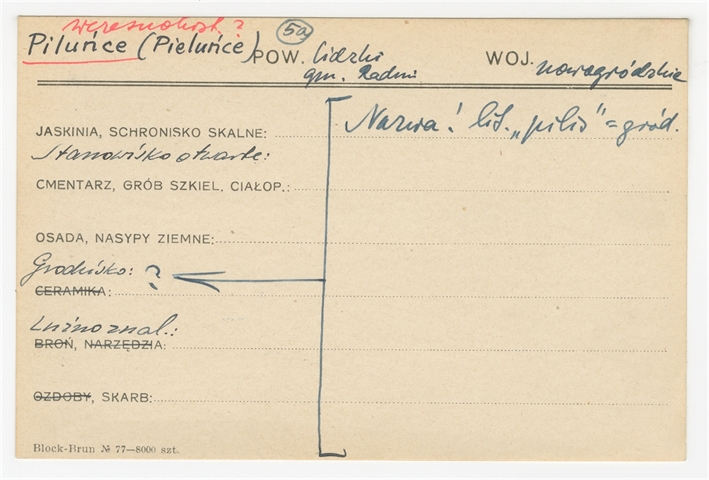 wczesnohist.?
Piluńce (Pieluńce) 5a POW. Lidzki WOJ. nowogródzkie
gm. Raduń
JASKINIA, SCHRONISKO SKALNE: Nazwa! lit. „pilis” = gród.
Stanowisko otwarte:
CMENTARZ, GRÓB SZKIEL, CIAŁOP.:
OSADA, NASYPY ZIEMNE:
Grodzisko: ?
CERAMIKA:
Luźno znal.:
BROŃ, NARZĘDZIA:
OZDOBY, SKARB:
Block-Brun № 77—8000 szt.